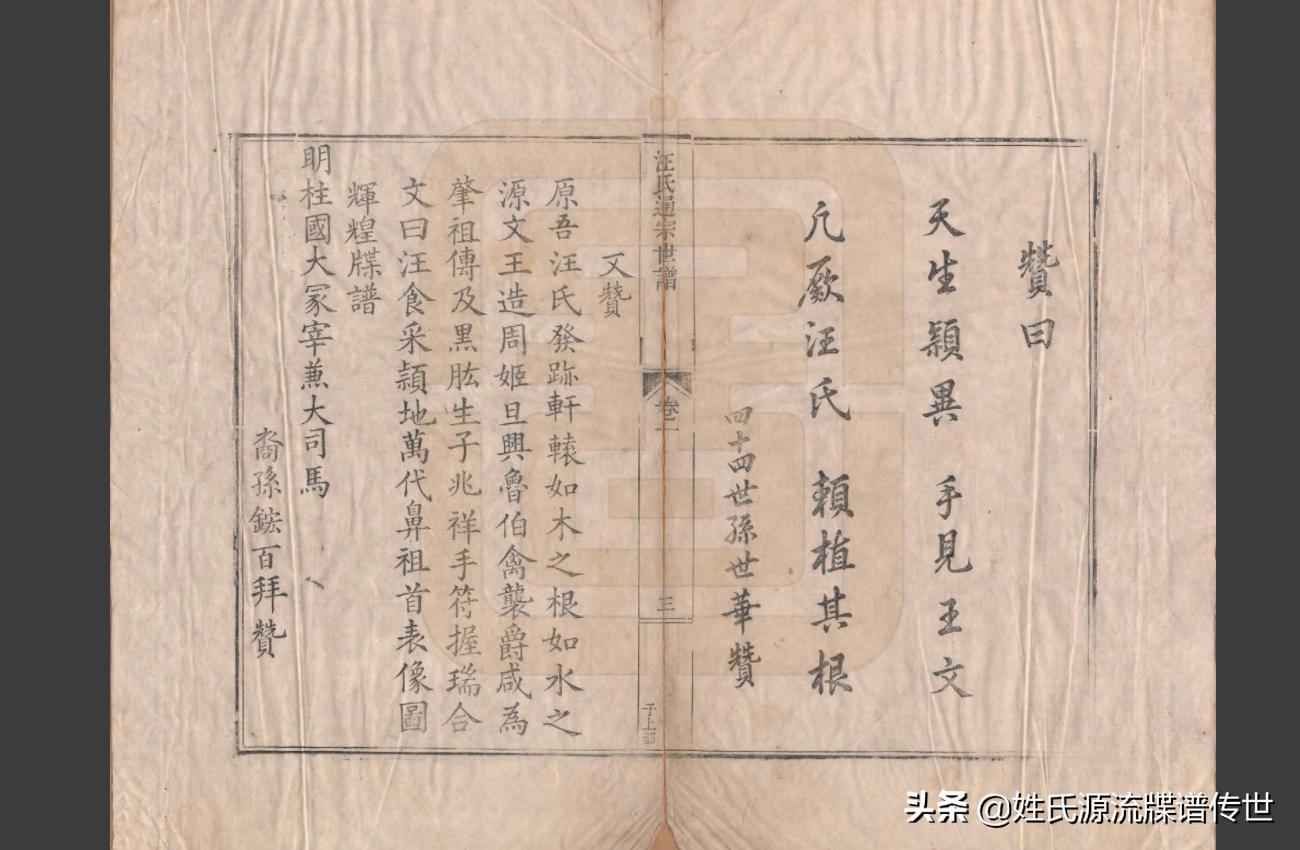 贊曰
天生頴異　手見王文
凡厥汪氏　賴植其根
四十四世孫世華贊
汪氏通宗世譜
卷一
三
子上部
又贊
原吾汪氏發跡軒轅如木之根如水之
源文王造周姬旦興魯伯禽襲爵咸為
肇祖傳及黑肱生子兆祥手符握瑞合
文曰汪食采頴地萬代鼻祖首表像圖
輝煌牒譜
明柱國大冢宰兼大司馬
裔孫鋐百拜贊
头条 @姓氏源流牒谱传世